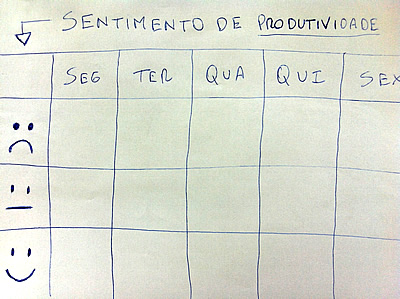 SENTIMENTO DE PRODUTIVIDADE
SEG TER QUA QUI SEX